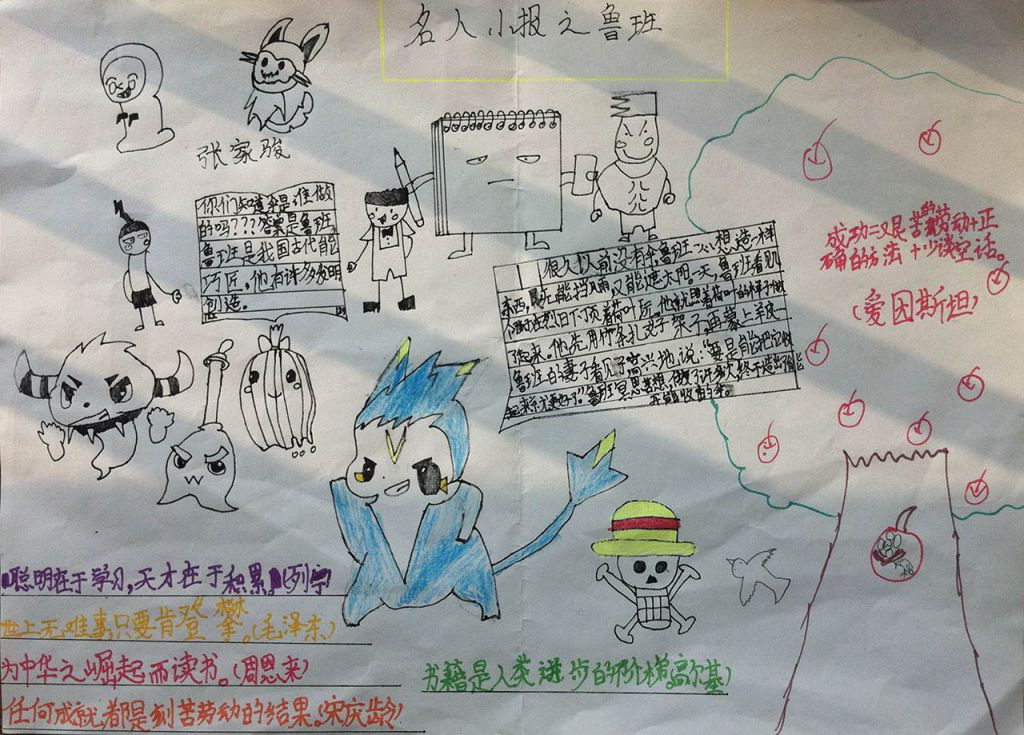 名人小报之鲁班
张家骏
你们知道伞是谁做
的吗???答案是鲁班,
鲁班是我国古代能
巧匠,他有许多发明
创造。
很久以前没有伞,鲁班一心想造一样
东西,既能挡雨又能遮太阳。一天,鲁班看见
小孩在烈日下顶着荷叶玩。
了起来。他先用竹条扎了架子,再蒙上羊皮
鲁班的妻子看见了高兴地说:“要是能把它收
起来就更好了”鲁班思思想想,做了许多次终于造出了能
开能收的伞。
成功=艰苦的劳动+正
确的方法+少谈空话。
(爱因斯坦)
聪明在于学习,天才在于积累。(列宁
世上无难事只要肯登攀。(毛泽东)
为中华之崛起而读书。(周恩来)
任何成就都是刻苦劳动的结果。宋庆龄)
书籍是人类进步的阶梯。高尔基)